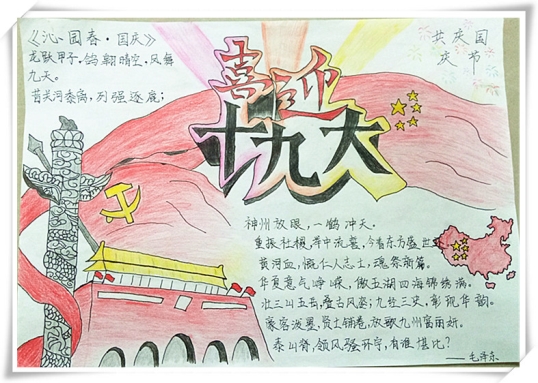 《沁园春·国庆》
龙跃甲子，鸽翱晴空，凤舞
九天。
昔关河泰离，列强逐鹿；
喜迎
十九大
共庆国
庆节
神州放眼，一鹤冲天。
重振社稷
今看东方盛世
黄河血，慨仁人志士，魂祭
华夏意气峥嵘，傲五湖四海锦绣满。
壮三山五岳，叠古风姿；九经三史，彰现华韵。
豪客泼墨，贤士铺卷，放歌九州富丽妍。
泰山脊，领风骚环宇，有谁堪比？
——毛泽东